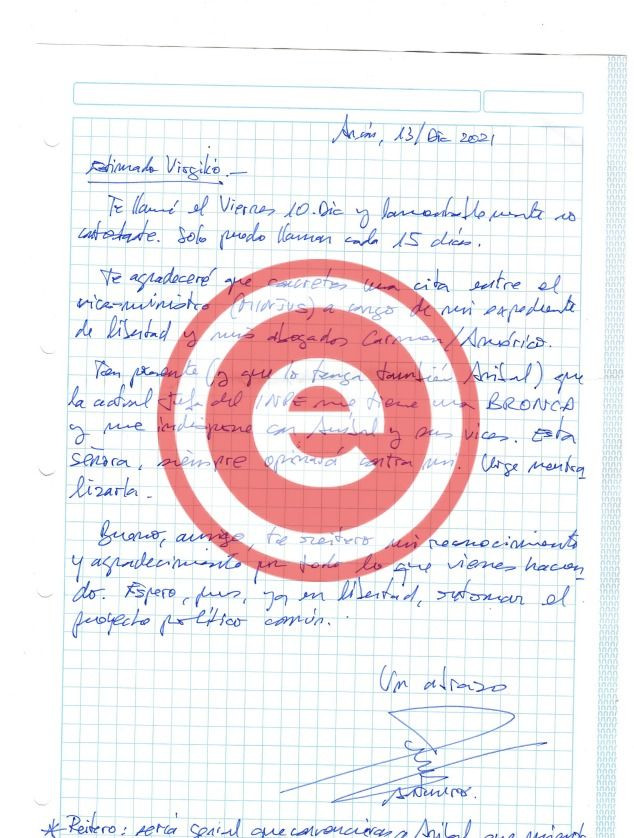 Ancón, 13/Dic 2021
Estimado Virgilio.—
Te llamé el Viernes 10.Dic y lamentablemente no
contestaste. Solo puedo llamar cada 15 días.
Te agradeceré que concretes una cita entre el
vice-ministro (MINJUS) a cargo de mi expediente
de libertad y mis abogados Carmen/Américo.
Ten presente (y que lo tenga también Aníbal) que
la actual Jefa del INPE me tiene una BRONCA
y me indispone con Aníbal y sus vices. Esta
señora, siempre opinará contra mí. Urge neutra
lizarla.
Bueno, amigo, te reitero mi reconocimiento
y agradecimiento por todo lo que vienes hacien
do. Espero, pues, ya en libertad, retomar el
proyecto político común.
Un abrazo
e
* Reitero: sería genial que convenciéras a Aníbal que